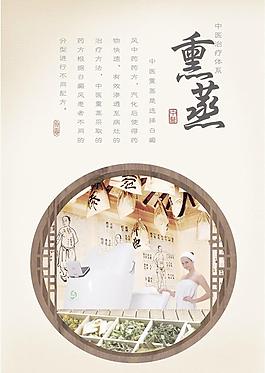 中医治疗体系
熏蒸
中医熏蒸是选择白癜
风中药药方，汽化后使得药
物快速、有效渗透至病灶的
治疗方法，中医熏蒸采取的
药方根据白癜风患者不同的
分型进行不同配方。